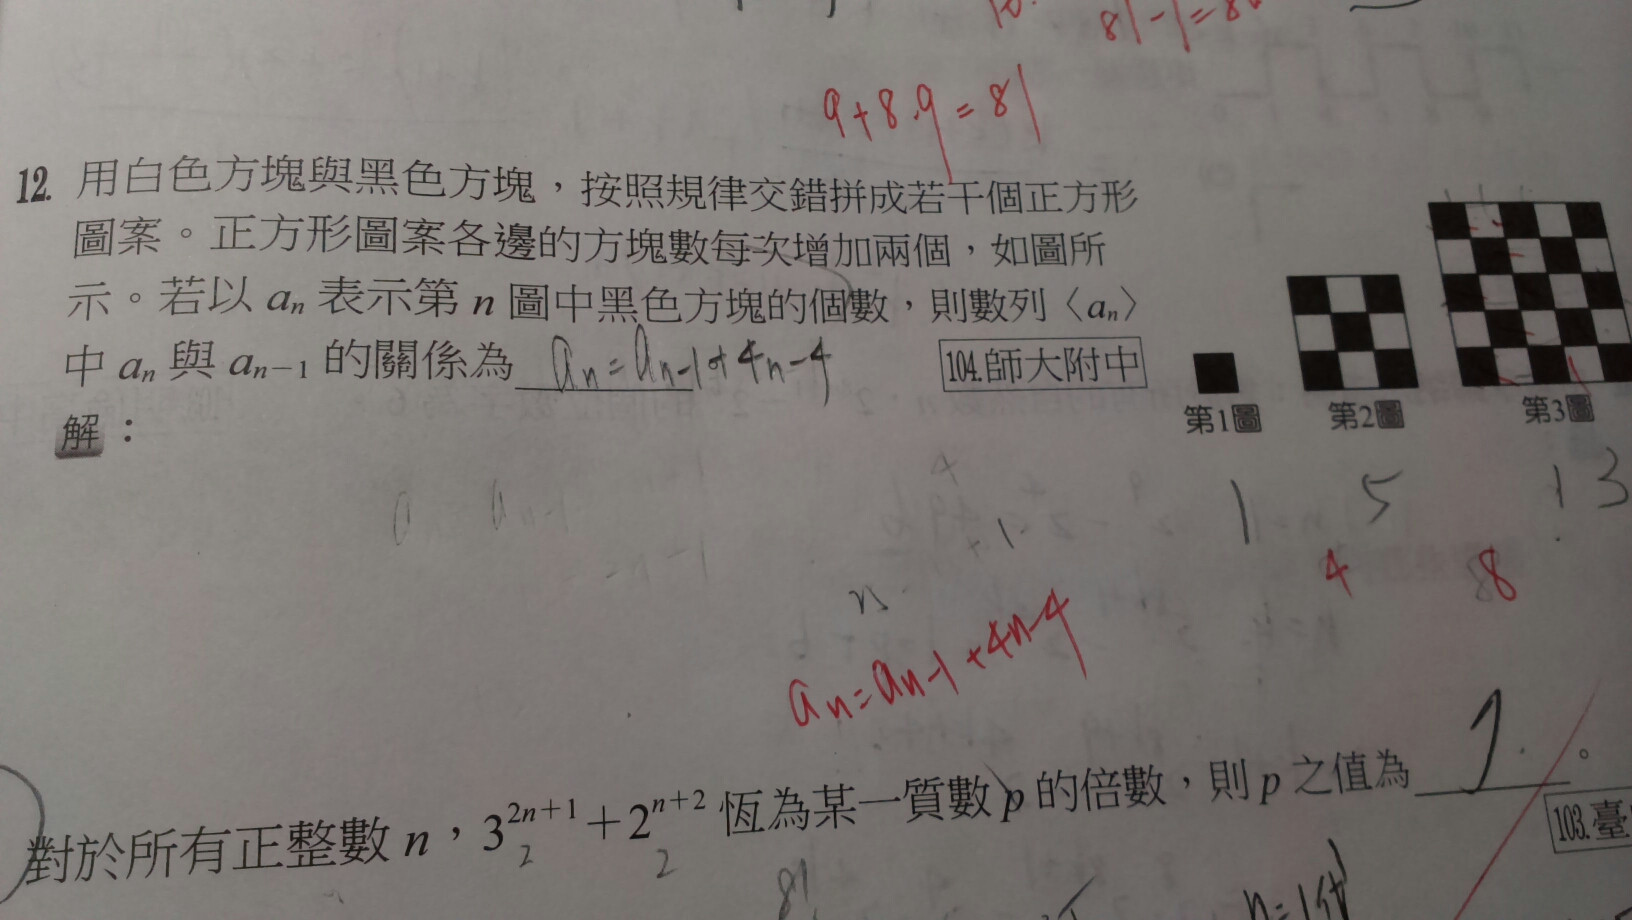 81-1=80
9+8.9=81
12. 用白色方塊與黑色方塊，按照規律交錯拼成若干個正方形
圖案。正方形圖案各邊的方塊數每次增加兩個，如圖所
示。若以 aₙ 表示第 n 圖中黑色方塊的個數，則數列〈aₙ〉
中 aₙ 與 aₙ₋₁ 的關係為 aₙ=aₙ₋₁+4n-4
104.師大附中
第1圖 第2圖 第3圖
解：
1 5 13
4 8
a aₙ₋₁
n
aₙ=aₙ₋₁+4n-4
對於所有正整數 n，3²ⁿ⁺¹+2ⁿ⁺² 恆為某一質數 p 的倍數，則 p 之值為 7.。
2 2
103.臺
81
n=1代